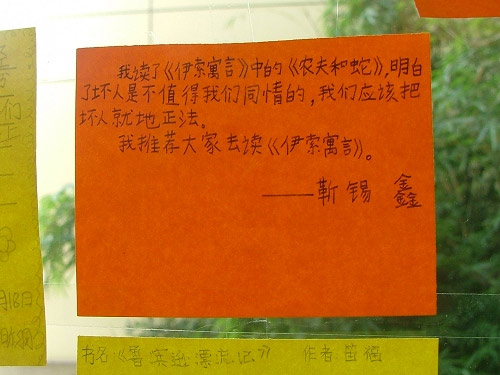 我读了《伊索寓言》中的《农夫和蛇》,明白
了坏人是不值得我们同情的,我们应该把
坏人就地正法。
我推荐大家去读《伊索寓言》。
——靳锡鑫
们
正
月18日
书名:《鲁宾逊漂流记》 作者:笛福